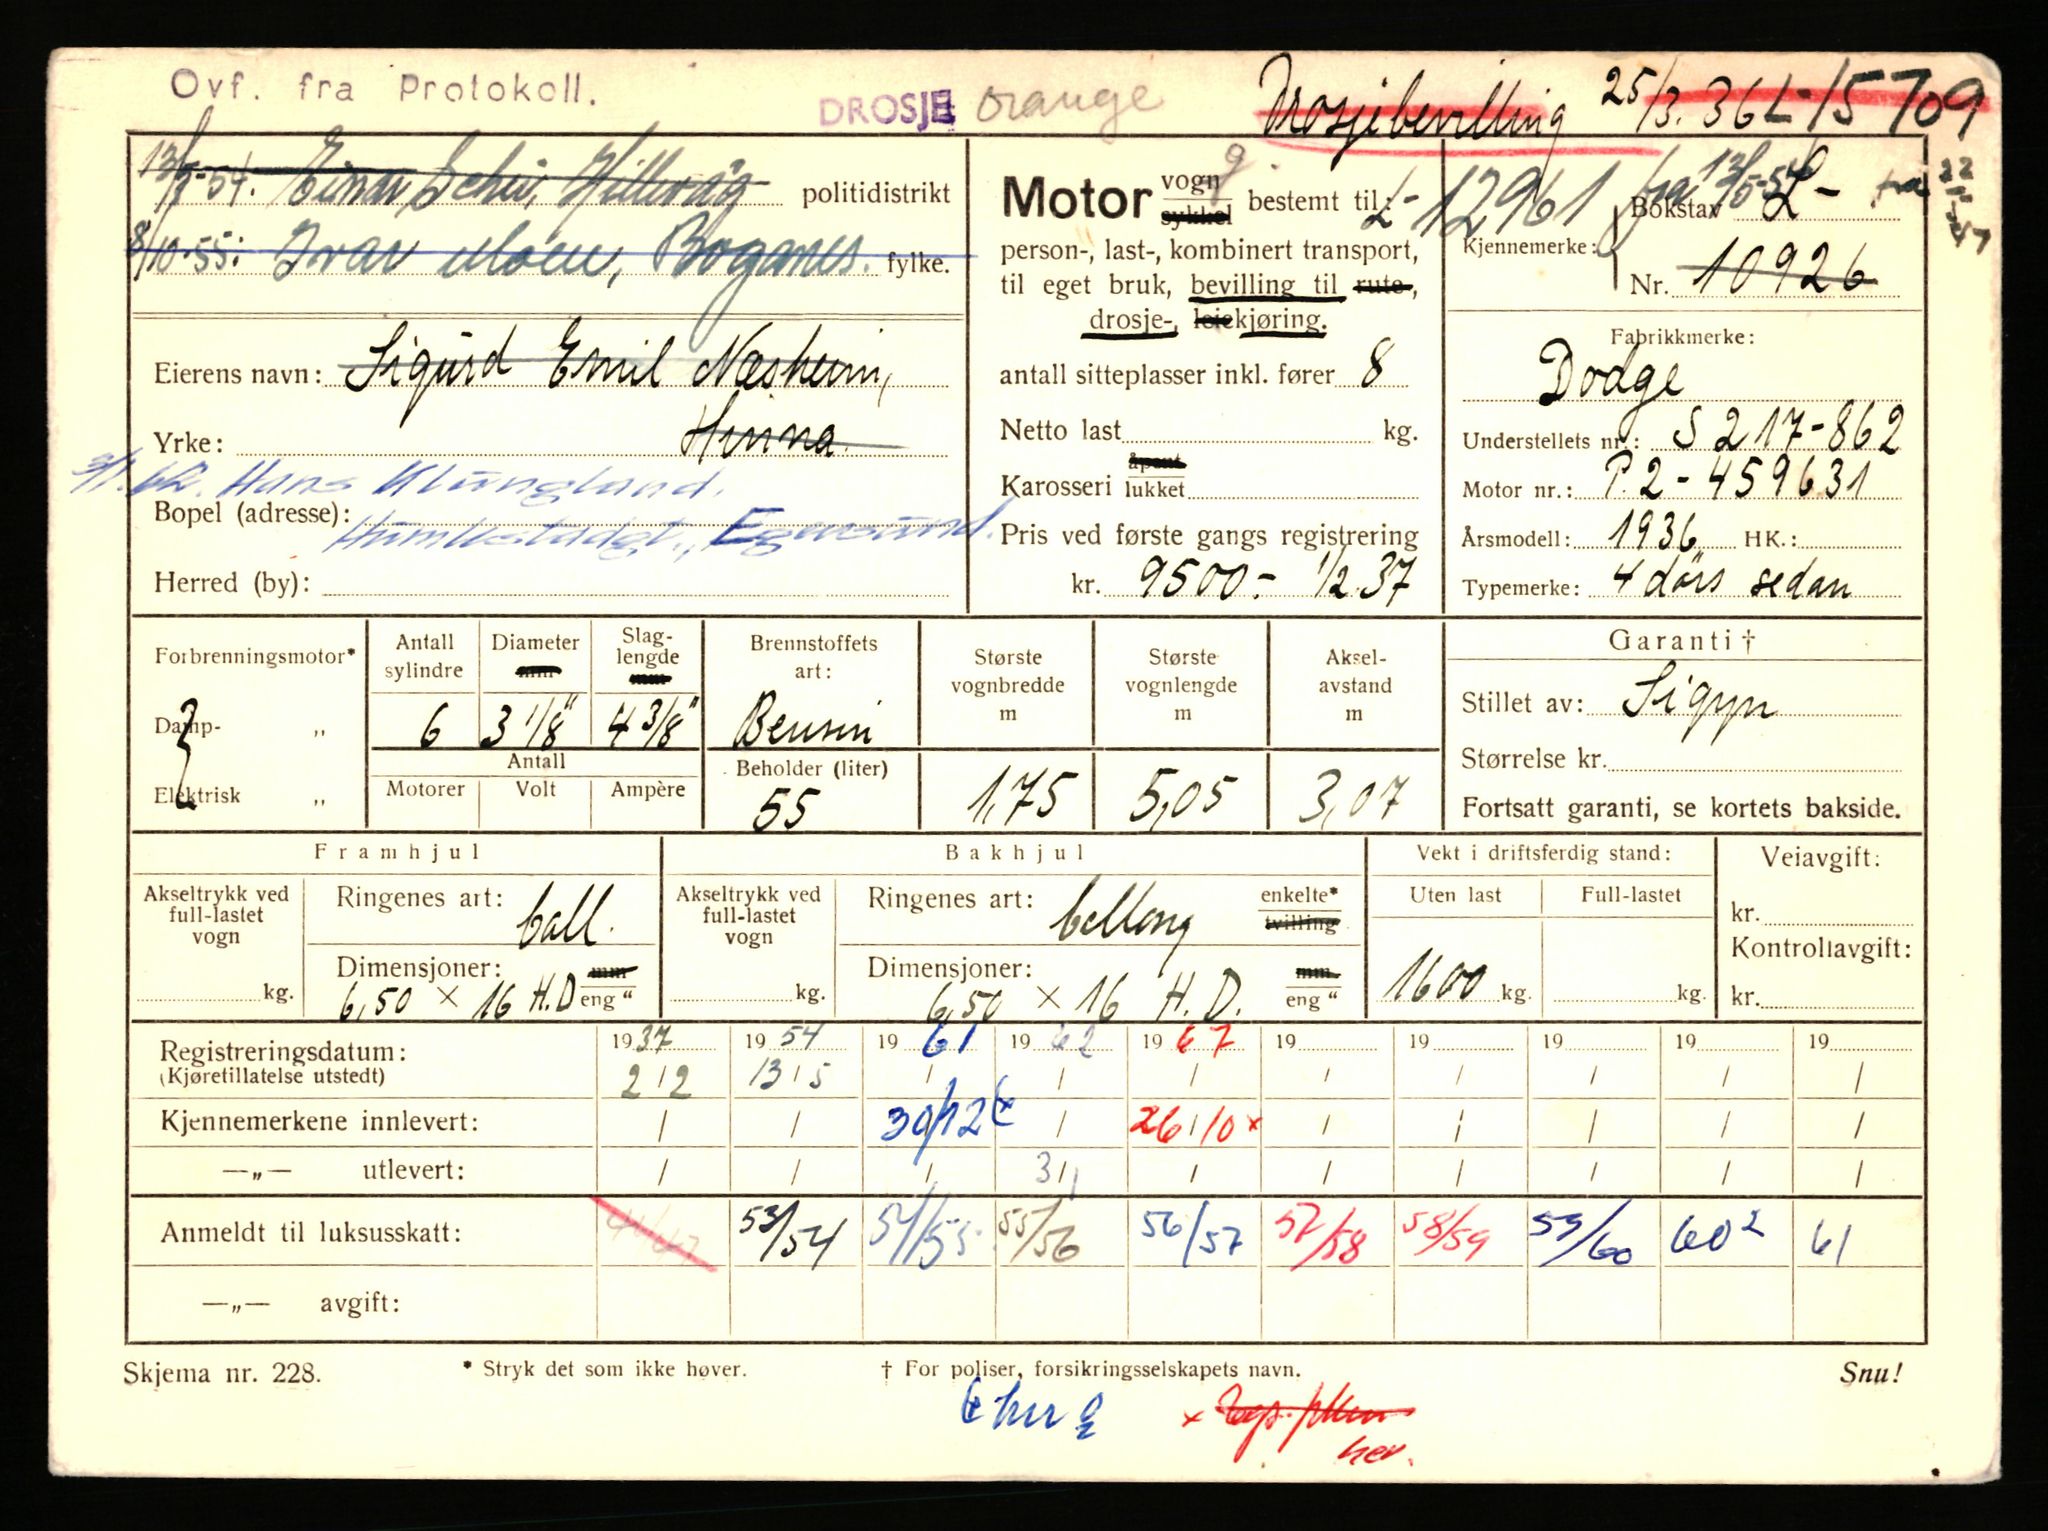 Ovf. fra Protokoll.
DROSJE orange
Drosjebevilling 25/3.36 L-15709
13/5-54. Einar politidistrikt
8/10-55: Ivar Moen, Boganes. fylke.
Eierens navn: Sigurd Emil Næsheim,
Yrke: Hinna
3/1.62. Hans Klungland.
Bopel (adresse): Egersund.
Herred (by):
Motor vogn sykkel bestemt til:
person-, last-, kombinert transport,
til eget bruk, bevilling til rute-,
drosje-, leiekjøring.
antall sitteplasser inkl. fører 8
Netto last kg.
Karosseri åpent lukket
Pris ved første gangs registrering
kr. 9500.- 1/2.37
L-12961 fra 13/5-54
Bokstav L- fra 22
Kjennemerke:
Nr. 10926
Fabrikkmerke:
Dodge
Understellets nr.: S 217-862
Motor nr.: P.2-459631
Årsmodell: 1936 HK.:
Typemerke: 4 dørs sedan
Forbrenningsmotor*
Damp- „
Elektrisk „
Antall sylindre 6
Diameter mm 3 1/8"
Slaglengde mm 4 3/8"
Antall
Motorer Volt Ampère
Brennstoffets art: Bensin
Beholder (liter) 55
Største vognbredde m 1,75
Største vognlengde m 5,05
Akselavstand m 3,07
Garanti †
Stillet av: Sigyn
Størrelse kr.
Fortsatt garanti, se kortets bakside.
Framhjul
Akseltrykk ved full-lastet vogn kg.
Ringenes art: ball.
Dimensjoner: mm
6,50 × 16 H.D eng "
Bakhjul
Akseltrykk ved full-lastet vogn kg.
Ringenes art: ballong enkelte* tvilling
Dimensjoner: mm.
6,50 × 16 H.D. eng "
Vekt i driftsferdig stand:
Uten last Full-lastet
1600 kg. kg.
Veiavgift:
kr.
Kontrollavgift:
kr.
Registreringsdatum: 1937 1954 1961 1962 1967 19 19 19 19 19
(Kjøretillatelse utstedt) 2/2 13/5 / / / / / / / /
Kjennemerkene innlevert: / / 30/12 / 26/10 × / / / / /
—„— utlevert: / / / 3/1 / / / / / /
Anmeldt til luksusskatt: 53/54 54/55 55/56 56/57 57/58 58/59 59/60 60² 61
—„— avgift:
Skjema nr. 228. * Stryk det som ikke høver. † For poliser, forsikringsselskapets navn. Snu!
× her.